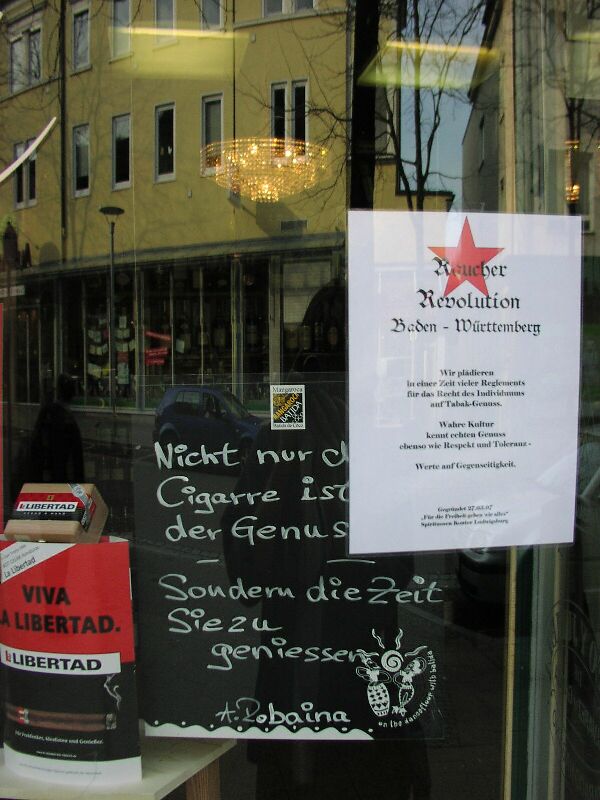 Raucher
Revolution
Baden - Württemberg
Wir plädieren
in einer Zeit vieler Reglements
für das Recht des Individuums
auf Tabak-Genuss.
Wahre Kultur
kennt echten Genuss
ebenso wie Respekt und Toleranz -
Werte auf Gegenseitigkeit.
Gegründet 27.03.07
„Für die Freiheit geben wir alles"
Spirituosen Kontor Ludwigsburg
Mangaroca
BATIDA
Batida de Côco
Nicht nur d
Cigarre ist
der Genus
—
Sondern die Zeit
Sie zu
geniessen
A. Robaina
on the dancefloor with batida
LIBERTAD
La Libertad
VIVA
LA LIBERTAD.
LIBERTAD
Für Freidenker, Abenteurer und Genießer.